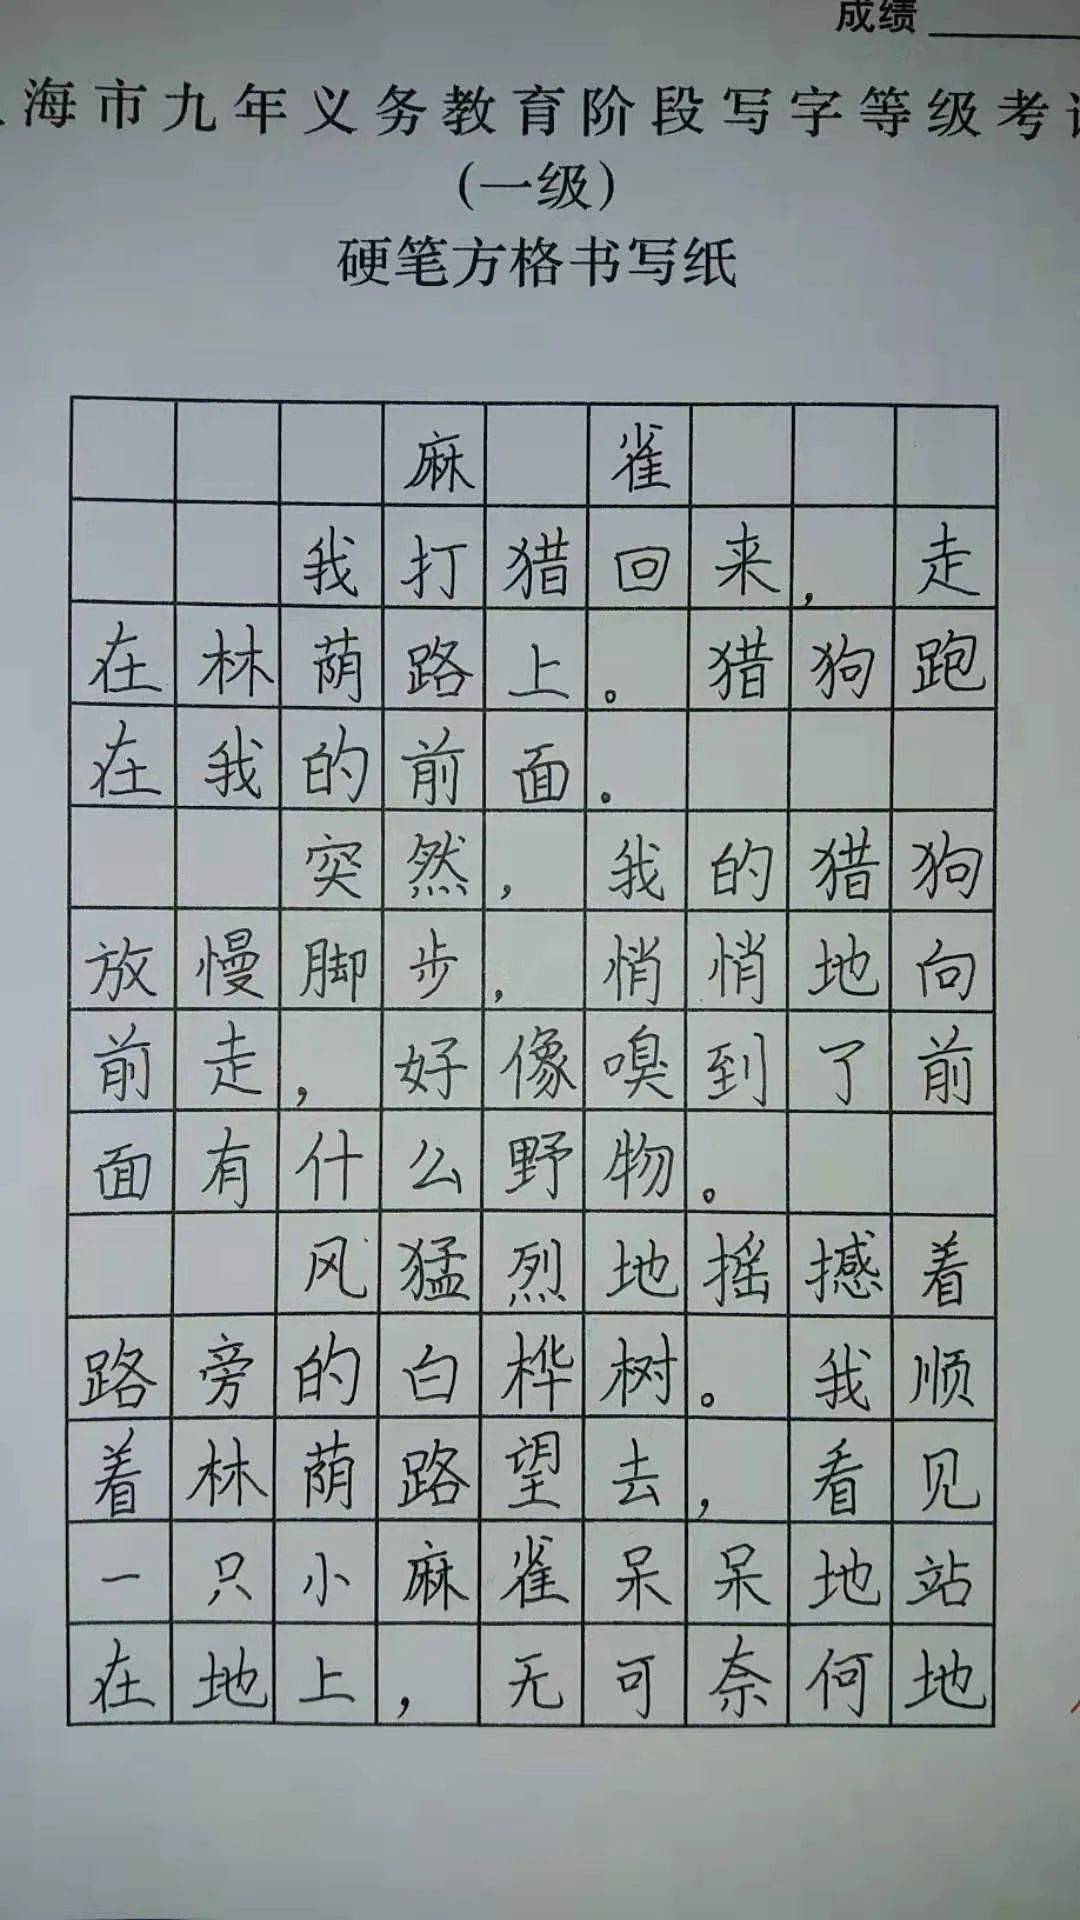 成绩
海市九年义务教育阶段写字等级考
（一级）
硬笔方格书写纸
麻雀
我打猎回来，走
在林荫路上。猎狗跑
在我的前面。
突然，我的猎狗
放慢脚步，悄悄地向
前走，好像嗅到了前
面有什么野物。
风猛烈地摇撼着
路旁的白桦树。我顺
着林荫路望去，看见
一只小麻雀呆呆地站
在地上，无可奈何地